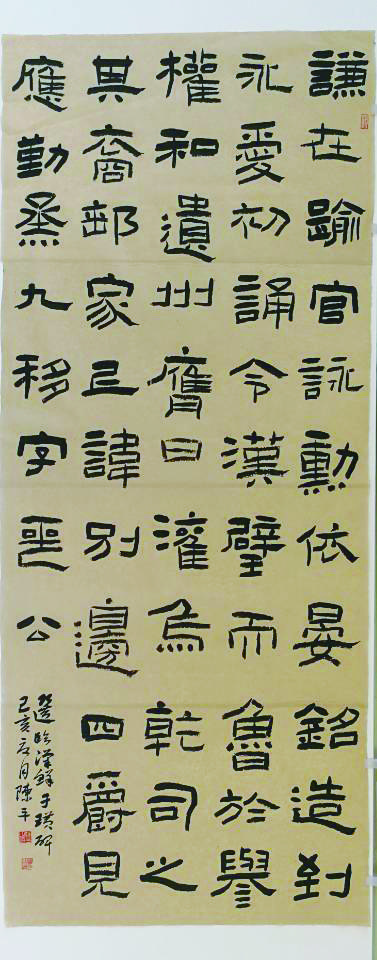 謙在踰官詠勳依晏銘造到
永愛初誦令漢壁而魯於譽
權和遺州膺曰灌焉乾司之
其裔家三諱別邊四爵見
應勤烝九移字公
選臨漢鮮于璜碑
己亥夏月陳平